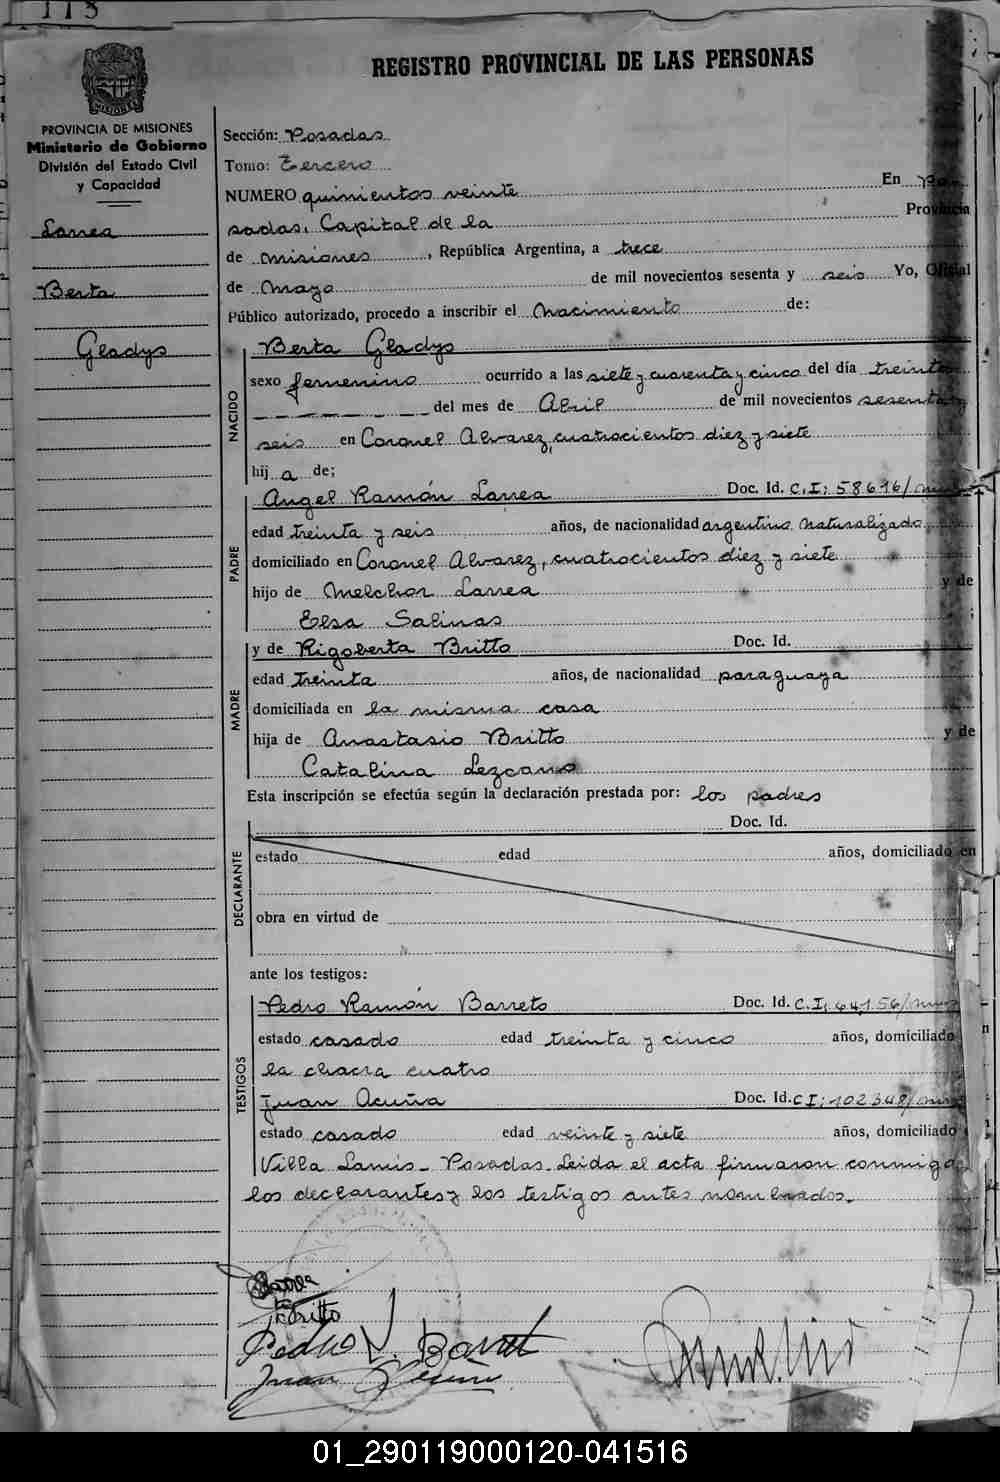 113
REGISTRO PROVINCIAL DE LAS PERSONAS
MISIONES
PROVINCIA DE MISIONES
Ministerio de Gobierno
División del Estado Civil
y Capacidad
Larrea
Berta
Gladys
Sección: Posadas
Tomo: Tercero
NUMERO quinientos veinte En Po-
sadas, Capital de la Provincia
de Misiones, República Argentina, a trece
de Mayo de mil novecientos sesenta y seis Yo, Oficial
Público autorizado, procedo a inscribir el Nacimiento de:
NACIDO
Berta Gladys
sexo femenino ocurrido a las siete y cuarenta y cinco del día treinta
del mes de Abril de mil novecientos sesenta y
seis en Coronel Alvarez, cuatrocientos diez y siete
hij a de;
PADRE
Angel Ramón Larrea Doc. Id. C.I: 58616/
edad treinta y seis años, de nacionalidad argentino naturalizado
domiciliado en Coronel Alvarez, cuatrocientos diez y siete
hijo de Melchor Larrea y de
Elsa Salinas
MADRE
y de Rigoberta Britto Doc. Id.
edad treinta años, de nacionalidad paraguaya
domiciliada en la misma casa
hija de Anastasio Britto y de
Catalina Lezcano
Esta inscripción se efectúa según la declaración prestada por: los padres
DECLARANTE
Doc. Id.
estado edad años, domiciliado en
obra en virtud de
ante los testigos:
TESTIGOS
Pedro Ramón Barreto Doc. Id. C.I: 64156/
estado casado edad treinta y cinco años, domiciliado
la chacra cuatro
Juan Acuña Doc. Id. CI: 102348/
estado casado edad veinte y siete años, domiciliado
Villa Lanús - Posadas. Leida el acta firmaron conmigo
los declarantes y los testigos antes nombrados.
Larrea
Britto
Pedro Barreto
Juan Acuña
01_290119000120-041516